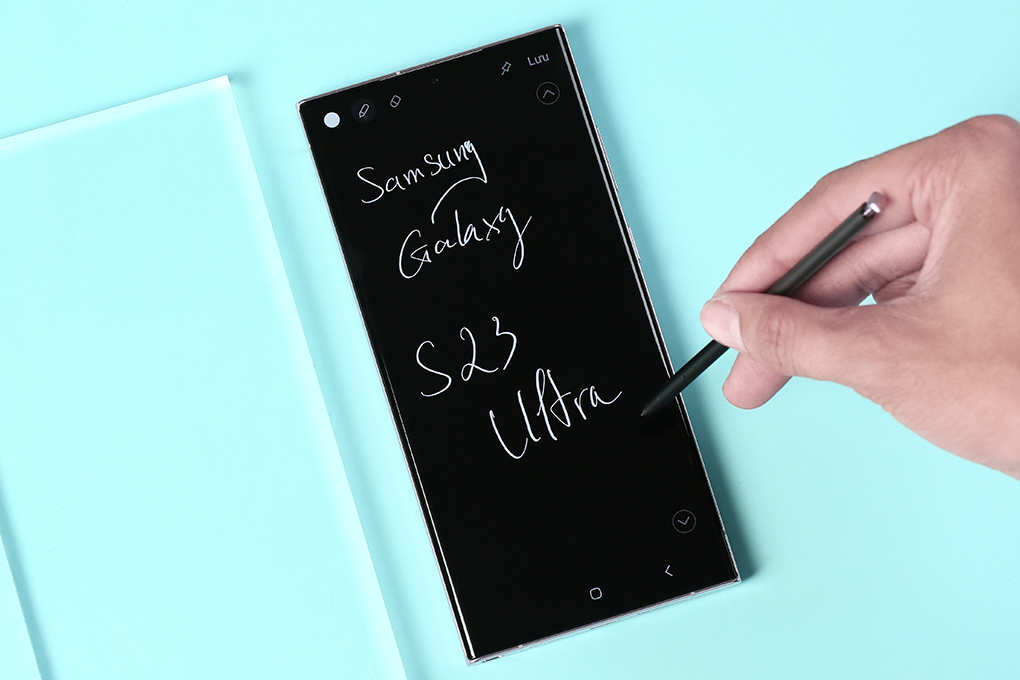 Lưu
Samsung
Galaxy
S23
Ultra